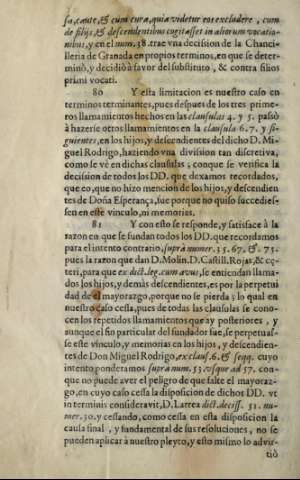 sa, caute, & cum cura, quia videtur eos excludere, cum
de filijs, & descendentibus cogitasset in aliorum vocatio-
nibus, y en el num. 38. trae vna decision de la Chanci-
lleria de Granada en propios terminos, en que se deter-
minò, y decidiò à favor del substituto, & contra filios
primi vocati.
80 Y esta limitacion es nuestro caso en
terminos terminantes, pues despues de los tres prime-
ros llamamientos hechos en las clausulas 4. y 5. passò
à hazerse otros llamamientos en la clausula 6. 7. y si-
guientes, en los hijos, y descendientes del dicho D. Mi-
guel Rodrigo, haziendo vna division tan discretiva,
como se vè en dichas clausulas; conque se verifica la
decision de todos los DD. que dexamos recordados,
que eo, que no hizo mencion de los hijos, y descendien
tes de Doña Esperança, fue porque no quiso succedies-
sen en este vinculo, ni memorias.
81 Y con esto se responde, y satisface à la
razon en que se fundan todos los DD. que recordamos
para el intento contrario, supra numer. 35. 67. & 73.
pues la razon que dan D. Molin. D. Castill. Rojas, & cę-
teri, para que ex dict. leg. cum avus, se entiendan llama-
dos los hijos, y demàs descendientes, es por la perpetui
dad de el mayorazgo, porque no se pierda; lo qual en
nuestro caso cessa, pues de todas las clausulas se cono-
cen los repetidos llamamientos que ay posteriores, y
aunque el fin particular del fundador fue, se perpetuas-
se este vinculo, y memorias en los hijos, y descendien-
tes de Don Miguel Rodrigo, ex claus. 6. & seqq. cuyo
intento ponderamos supra num. 53. vsque ad 57. con-
que no puede aver el peligro de que falte el mayoraz-
go, en cuyo caso cessa la disposicion de dichos DD. vt
in terminis consideravit, D. Larrea dict. decis. 51. nu-
mer. 30. y cessando, como cessa en esta disposicion la
causa final, y fundamental de sus resoluciones, no se
pueden aplicar à nuestro pleyto, y esto mismo lo advir-
tiò